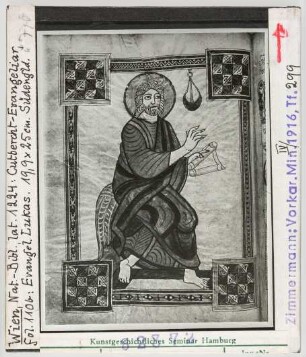 Wien, Nat.-Bibl. lat. 1224. Cutbercht-Evangeliar
Fol. 110b: Evangel. Lukas. 19,9 x 25 cm. Südengld.
Kunstgeschichtliches Seminar Hamburg
Zimmermann: Vorkar. Min/1916, Tf. 299
IV/